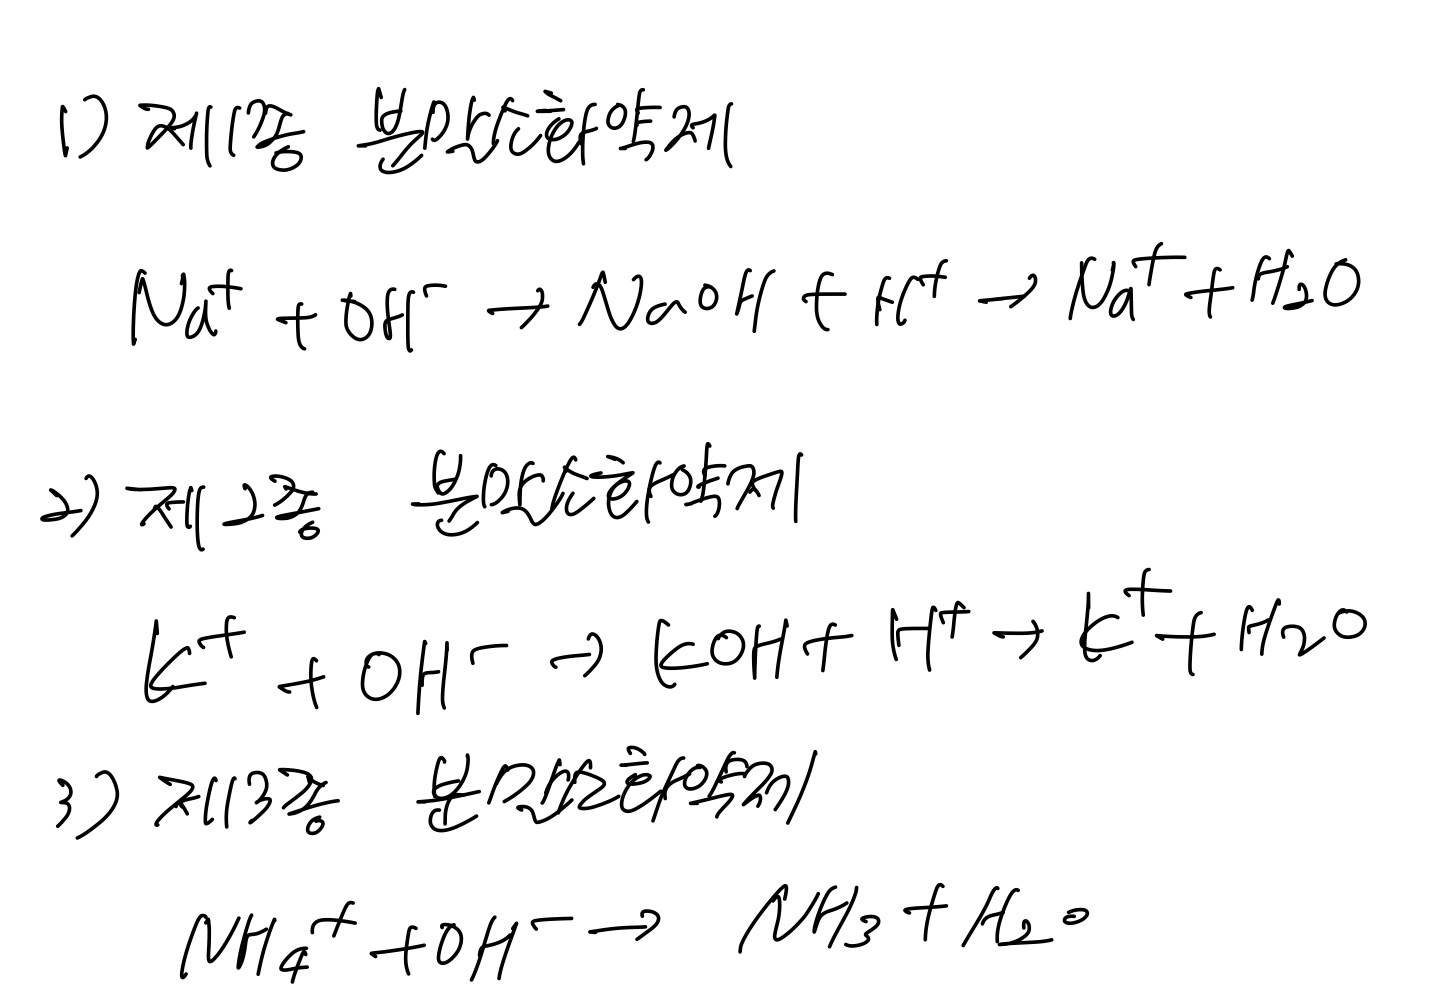 1) 제1종 분말소화약제
Na⁺ + OH⁻ → NaOH + H⁺ → Na⁺ + H₂O
2) 제2종 분말소화약제
K⁺ + OH⁻ → KOH + H⁺ → K⁺ + H₂O
3) 제3종 분말소화약제
NH₄⁺ + OH⁻ → NH₃ + H₂O